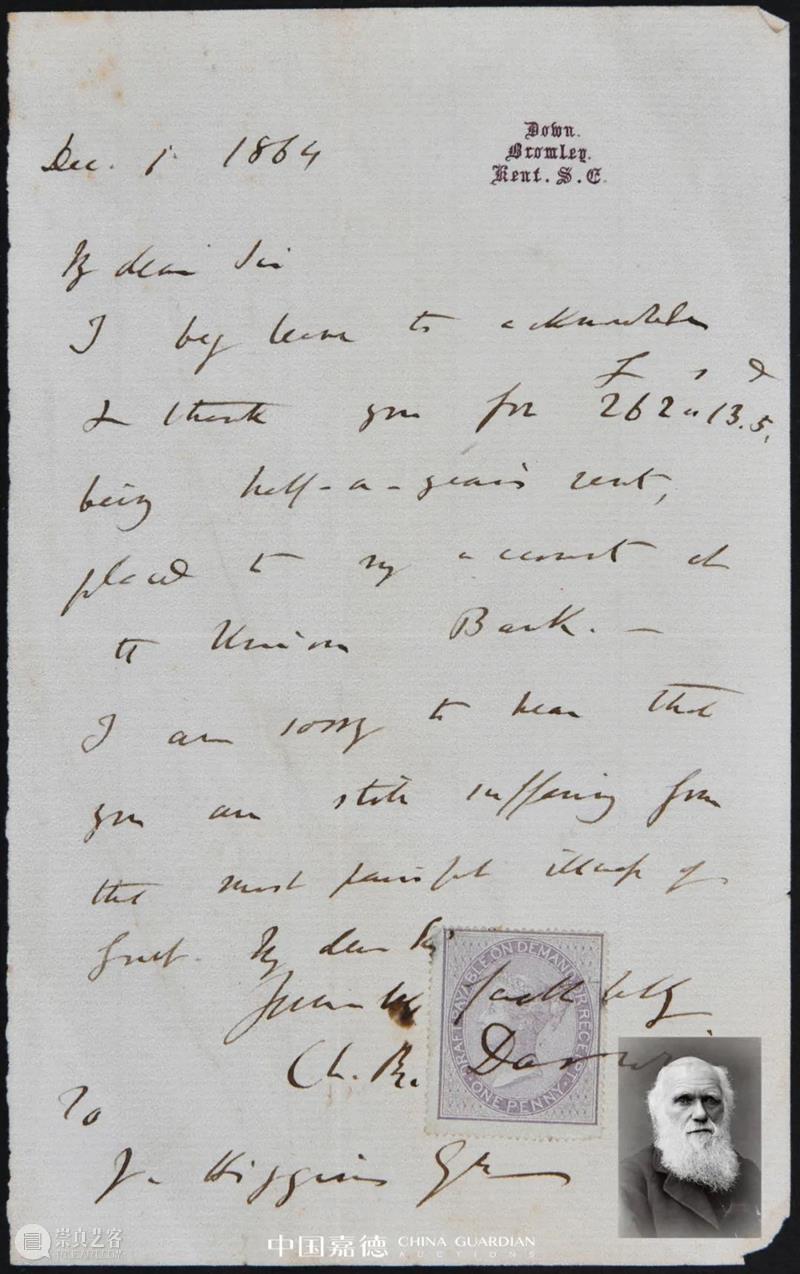 Down.
Bromley.
Kent. S.E.
Dec. 1. 1864
My dear Sir
I beg leave to acknowledge
& thank you for £ s d 262 " 13. 5.
being half-a-year's rent,
placed to my account at
the Union Bank. —
I am sorry to hear that
you are still suffering from
that most painful illness of
gout. My dear Sir
Yours very faithfully
Ch. R. Darwin
DRAFT PAYABLE ON DEMAND OR RECEIPT
ONE PENNY
To
J. Higgins Esq
崇真艺客
TRUEART.COM
中国嘉德 CHINA GUARDIAN
AUCTIONS